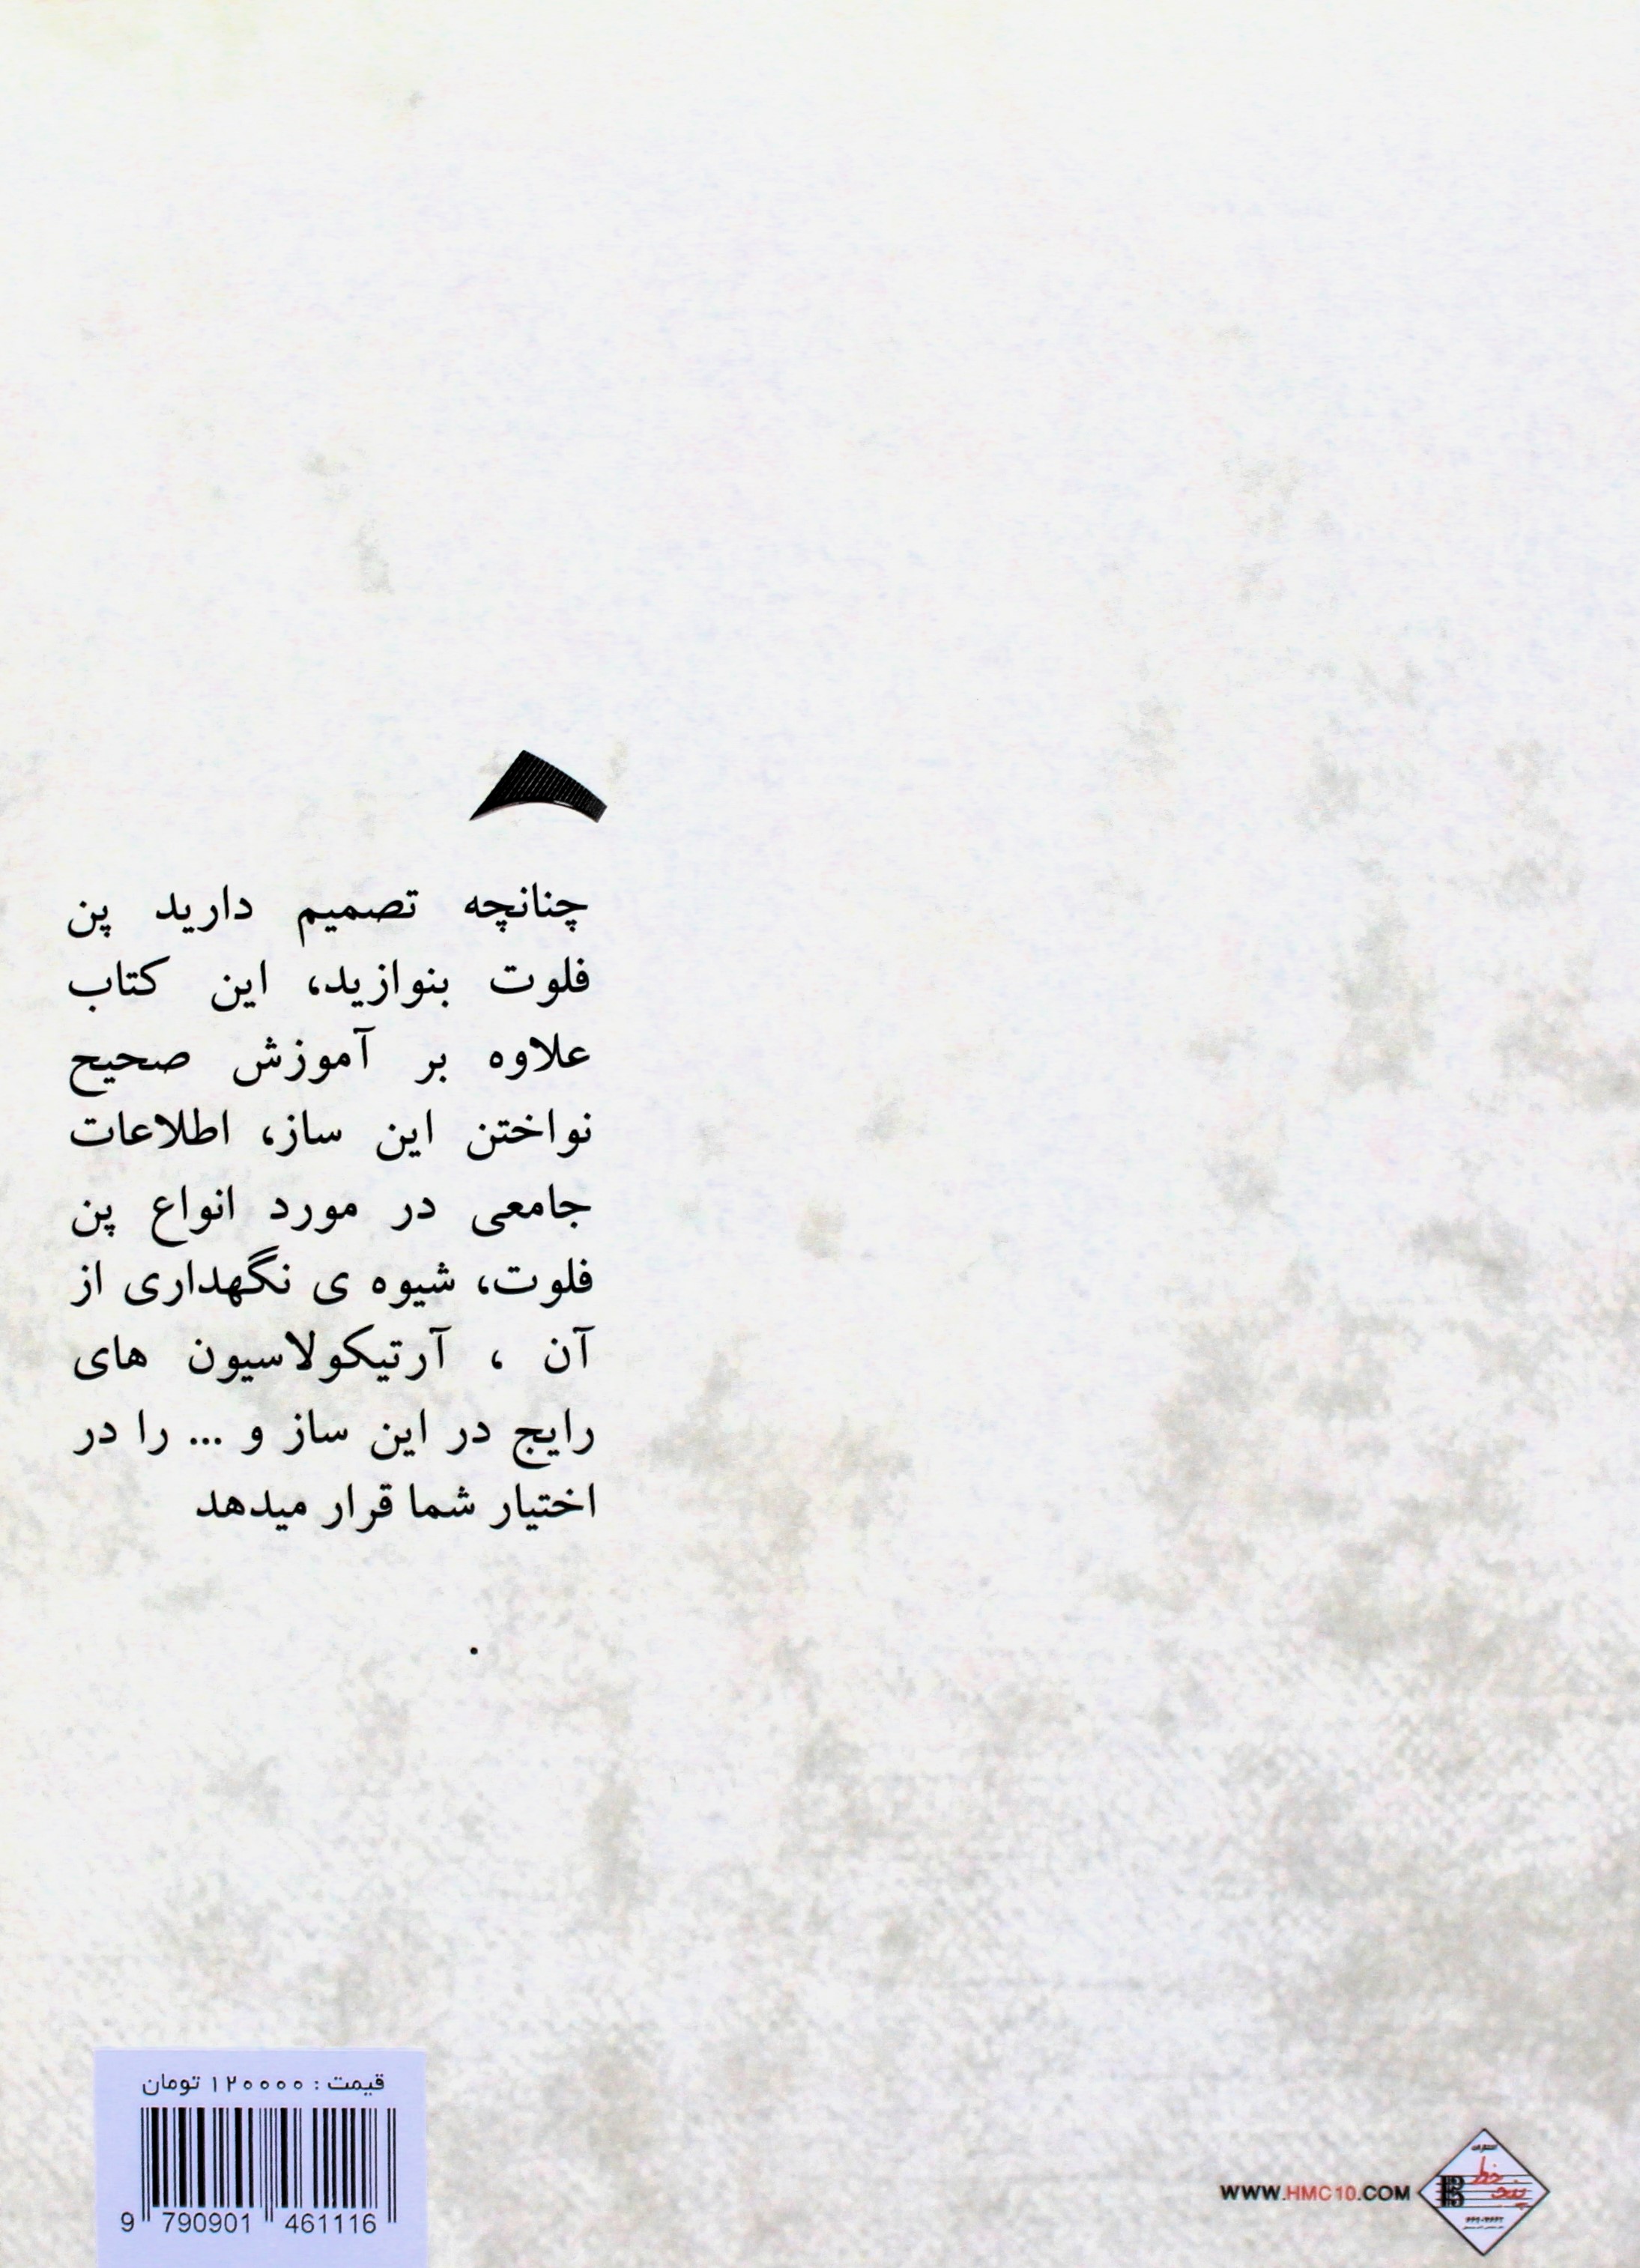 چنانچه تصمیم دارید پن
فلوت بنوازید، این کتاب
علاوه بر آموزش صحیح
نواختن این ساز، اطلاعات
جامعی در مورد انواع پن
فلوت، شیوه ی نگهداری از
آن ، آرتیکولاسیون های
رایج در این ساز و ... را در
اختیار شما قرار میدهد
.
قیمت : ۱۲۰۰۰۰ تومان
9 790901 461116
WWW.HMC10.COM
انتشارات
پنج خط